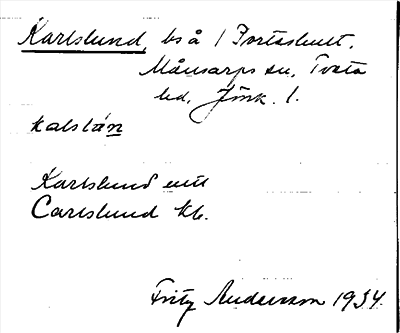 Karlslund, bs å 1 Fortashult,
Månsarps sn, Tveta
hd, Jönk. l.
kalslán
Karlslund enl
Carlslund kb.
Fritz Andersson 1934.